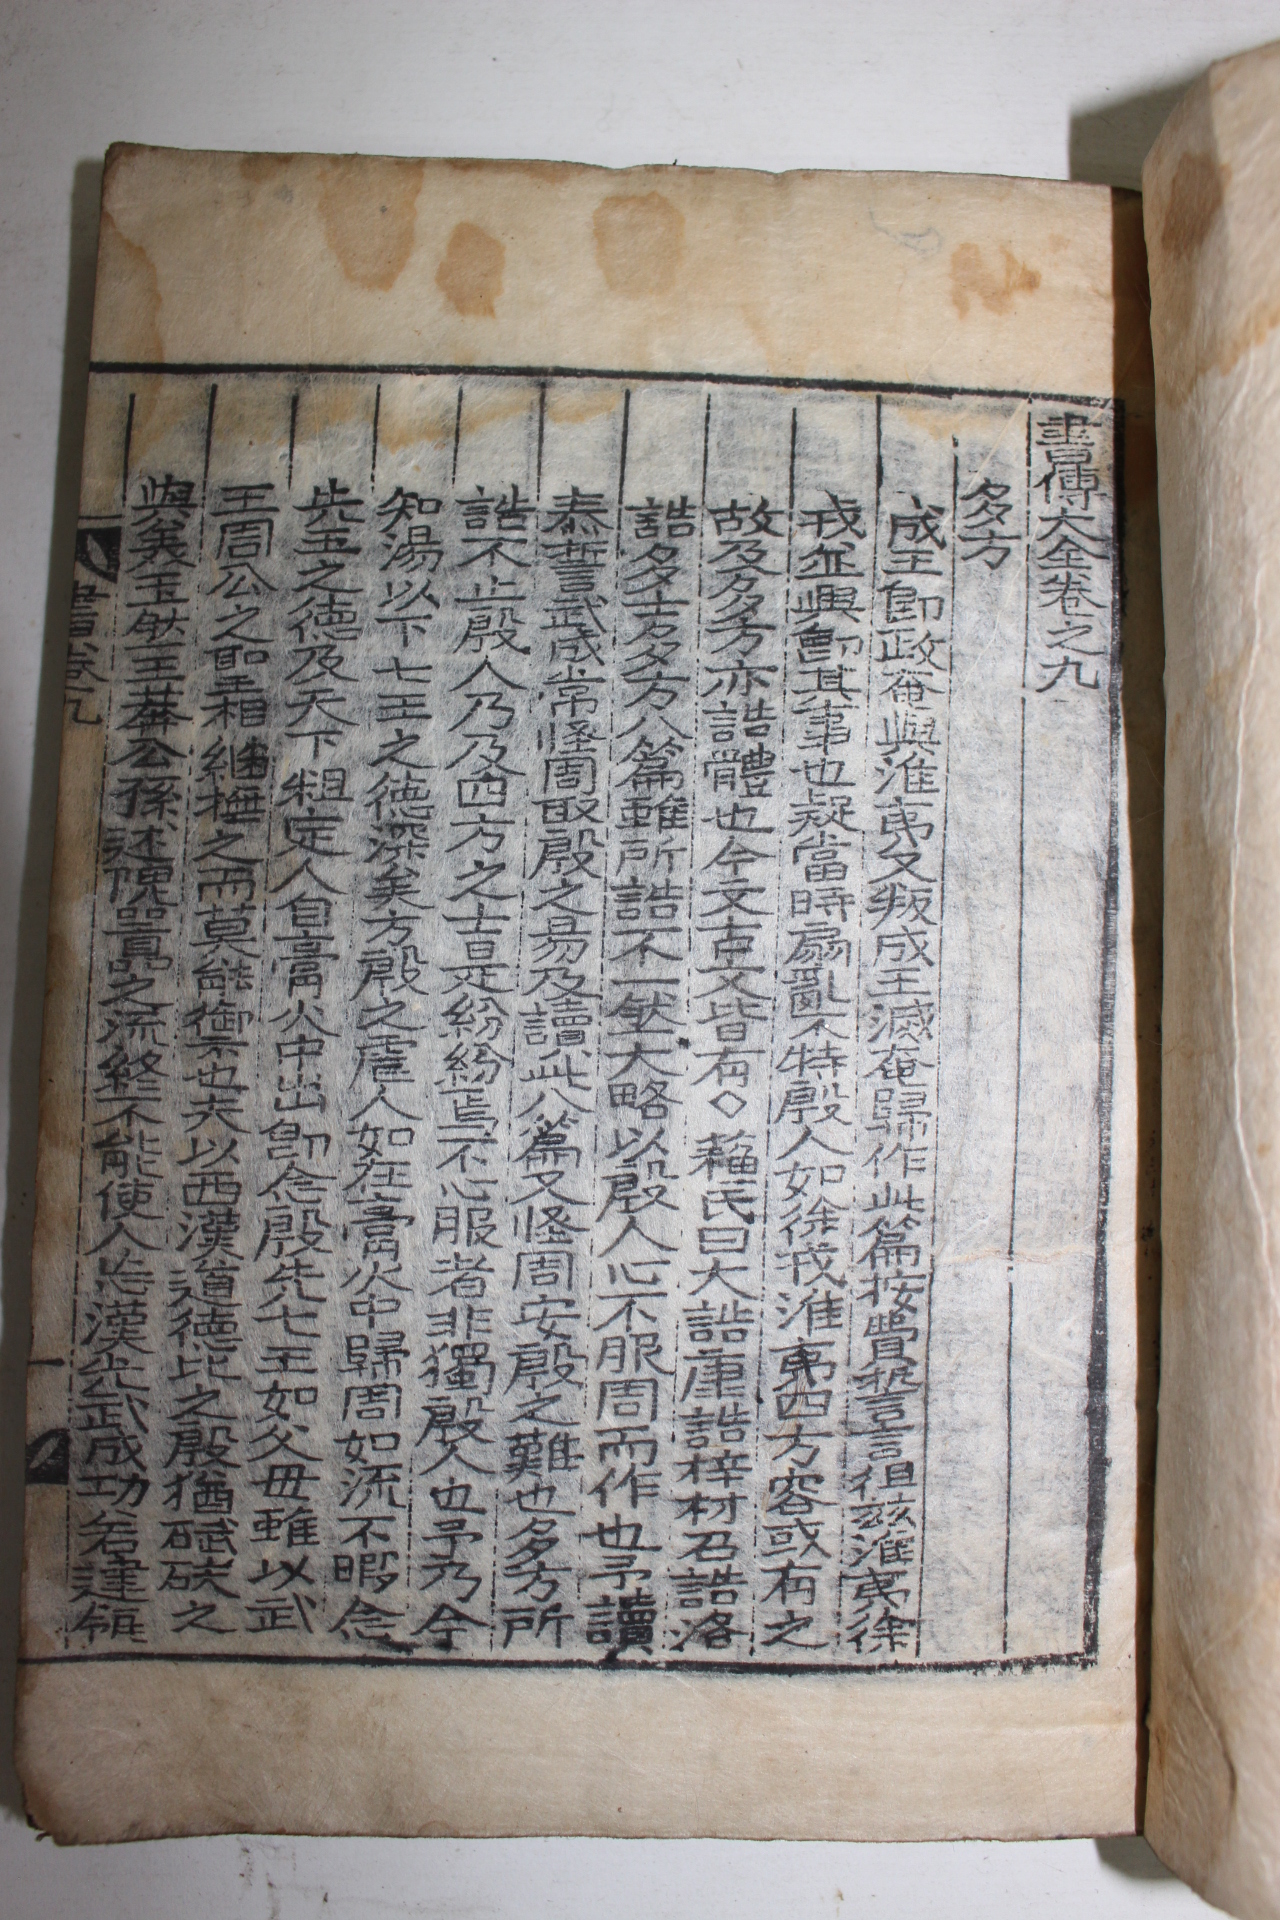 書傳大全卷之九
多方
成王卽政奄與淮夷又叛成王滅奄歸作此篇按費誓言徂玆淮夷徐
戎並興卽其事也疑當時扇亂不特殷人如徐戎淮夷四方容或有之
故及多方亦誥體也今文古文皆有◇蘇氏曰大誥康誥梓材召誥洛
誥多士多方八篇雖所誥不一然大略以殷人心不服周而作也予讀
泰誓武成常怪周取殷之易及讀此八篇又怪周安殷之難也多方所
誥不止殷人乃及四方之士是紛紛焉不心服者非獨殷人也予乃今
知湯以下七王之德深矣方殷之虐人如在膏火中歸周如流不暇念
先王之德及天下粗定人自膏火中出卽念殷先七王如父母雖以武
王周公之聖相繼撫之而莫能御也夫以西漢道德比之殷猶碔砆之
與美玉然王莽公孫述隗囂之流終不能使人忘漢光武成功若建瓴
書卷九
一